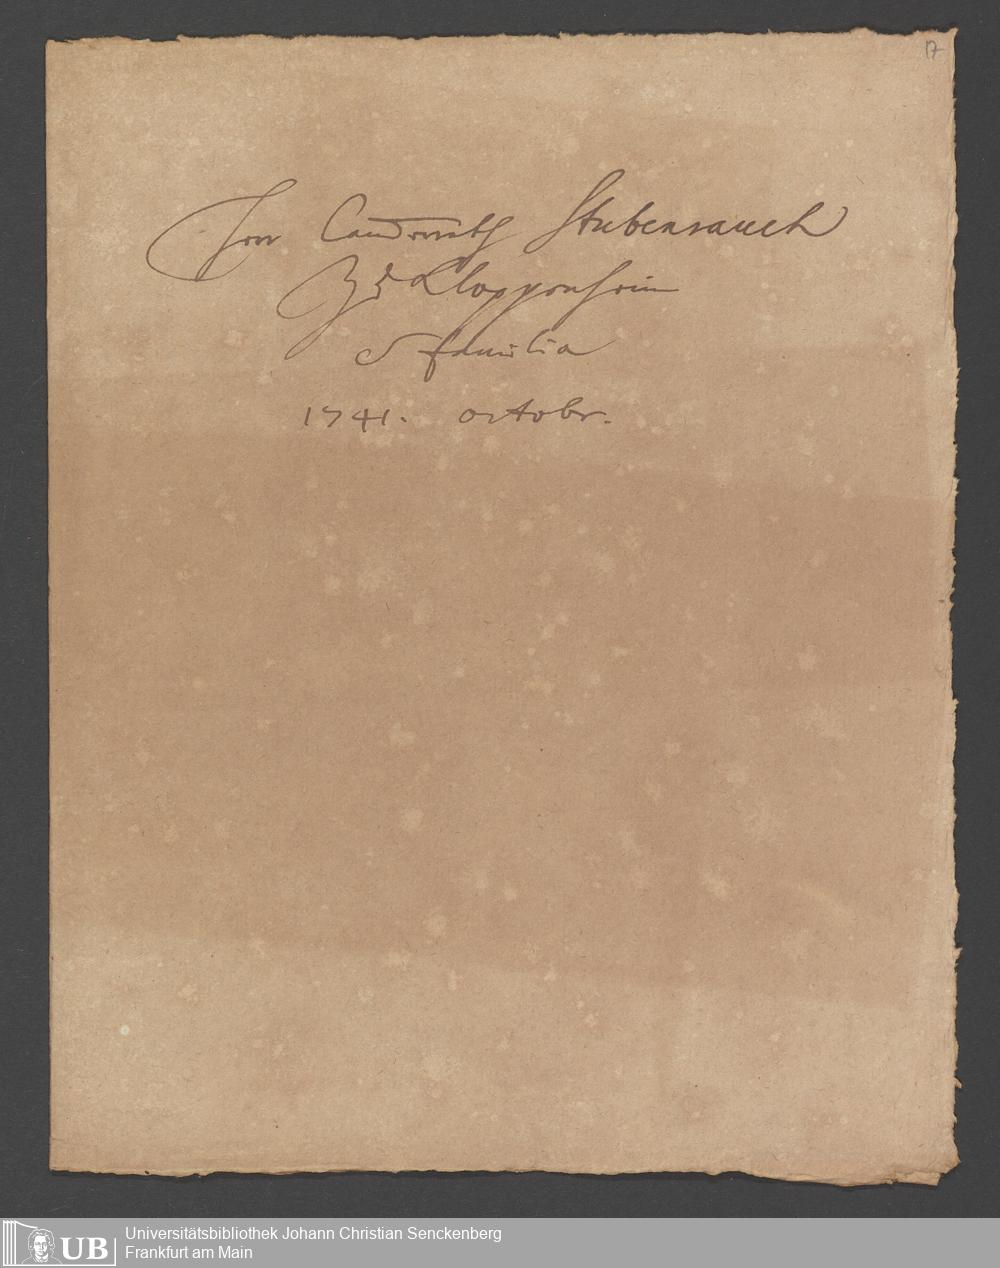 17
Herr Landrath Stubenrauch
Zu Kloppenheim
et familia
1741. octobr.
UB
Universitätsbibliothek Johann Christian Senckenberg
Frankfurt am Main